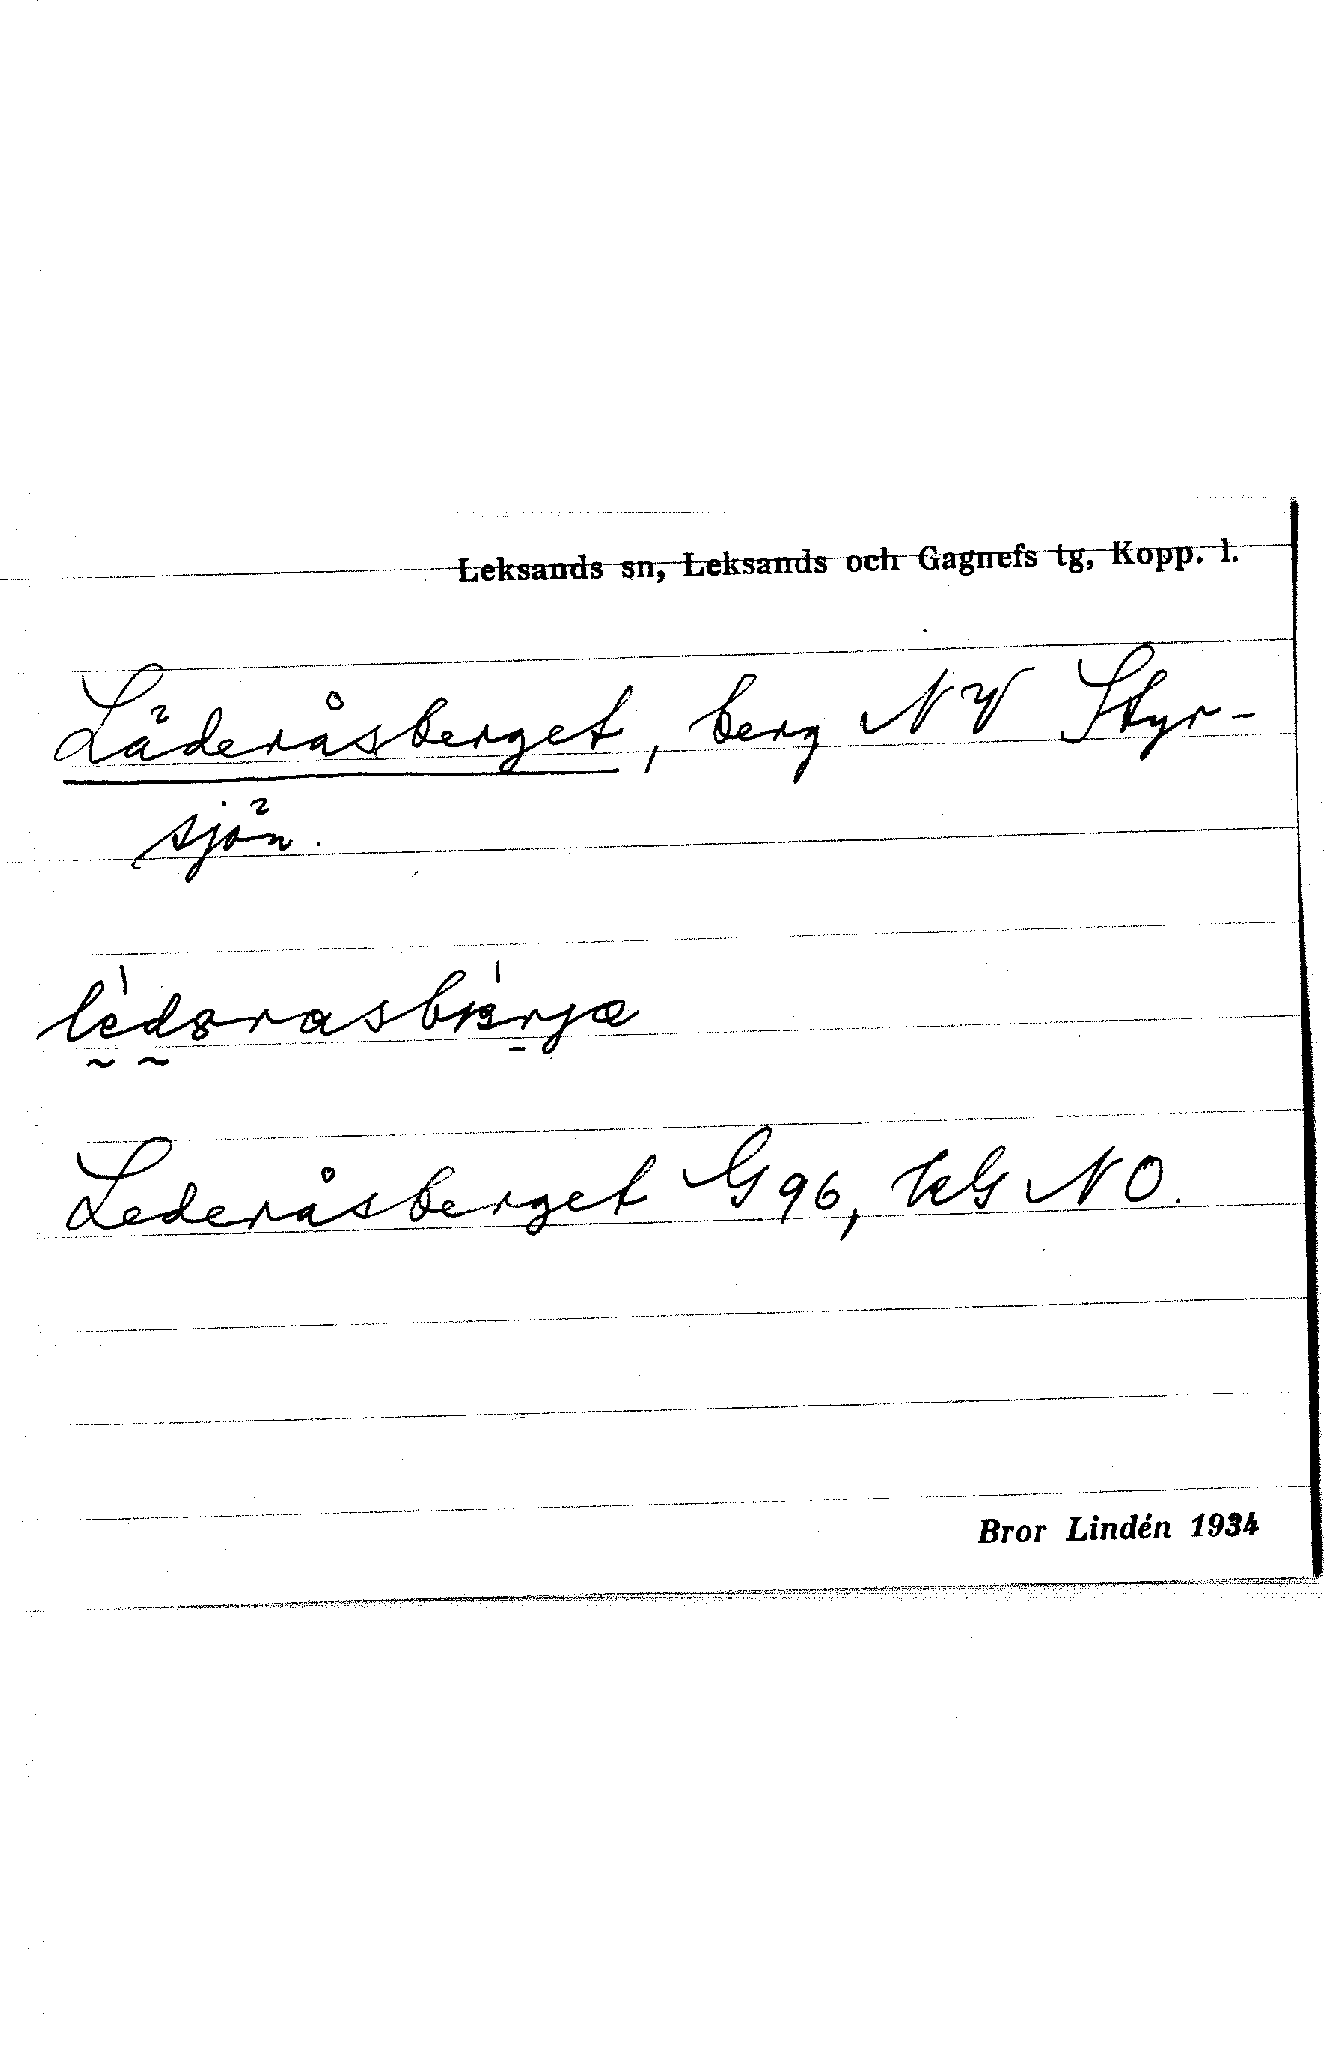 Leksands sn, Leksands och Gagnefs tg, Kopp. l.
Läderåsberget, berg NV Styr-
sjön.
Lederåsberget G96, kG NO.
Bror Lindén 1934